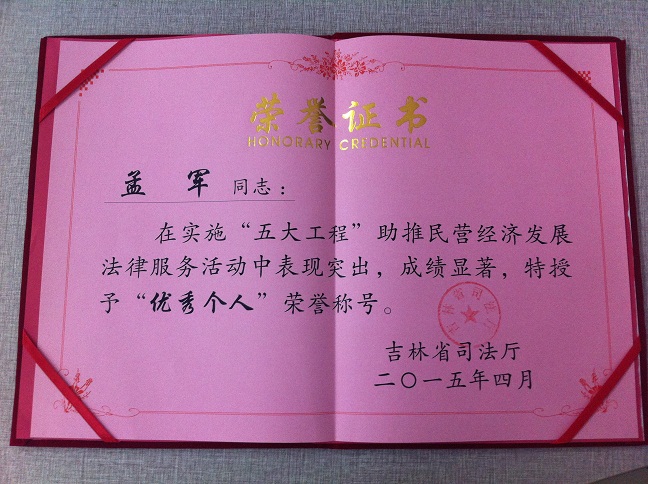 荣誉证书
HONORARY CREDENTIAL
孟 军 同志：
在实施“五大工程”助推民营经济发展
法律服务活动中表现突出，成绩显著，特授
予“优秀个人”荣誉称号。
吉林省司法厅
吉林省司法厅
二〇一五年四月